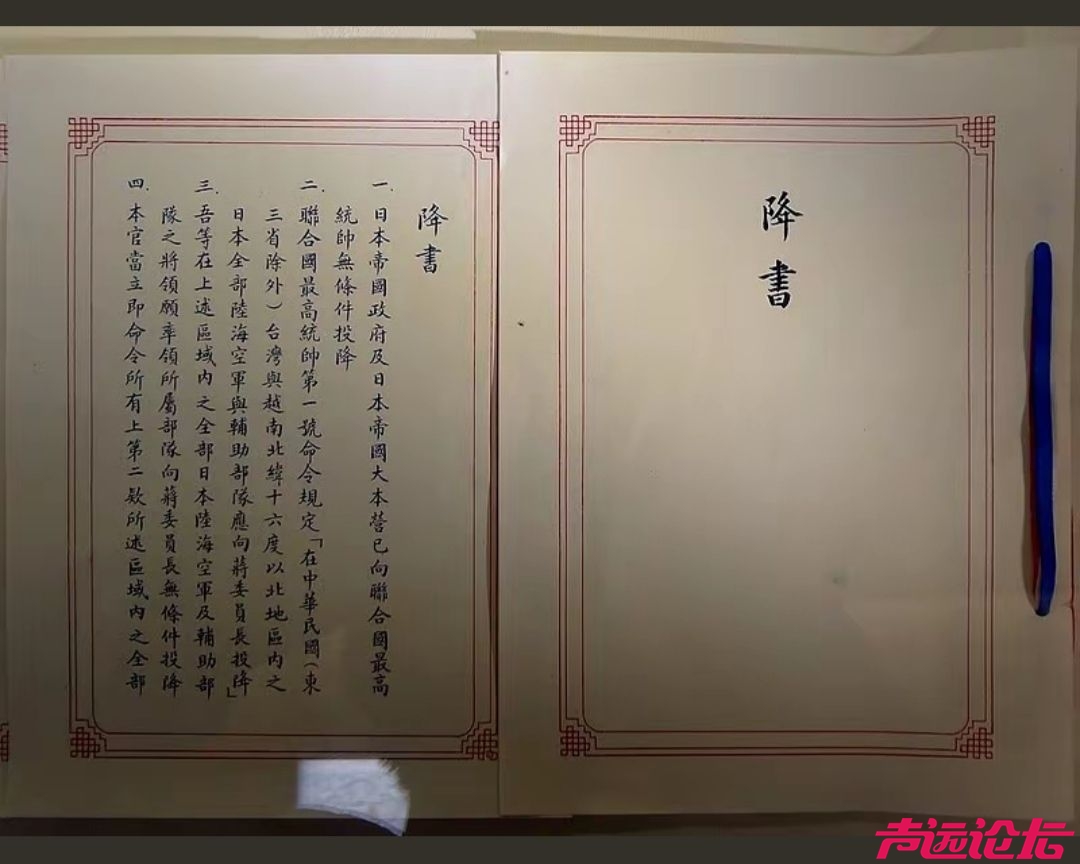 降書
降書
一.日本帝國政府及日本帝國大本營已向聯合國最高
統帥無條件投降
二.聯合國最高統帥第一號命令規定「在中華民國(東
三省除外)台灣與越南北緯十六度以北地區內之
日本全部陸海空軍與輔助部隊應向蔣委員長投降」
三.吾等在上述區域內之全部日本陸海空軍及輔助部
隊之將領願率領所屬部隊向蔣委員長無條件投降
四.本官當立即命令所有上第二欵所述區域內之全部
声远论坛